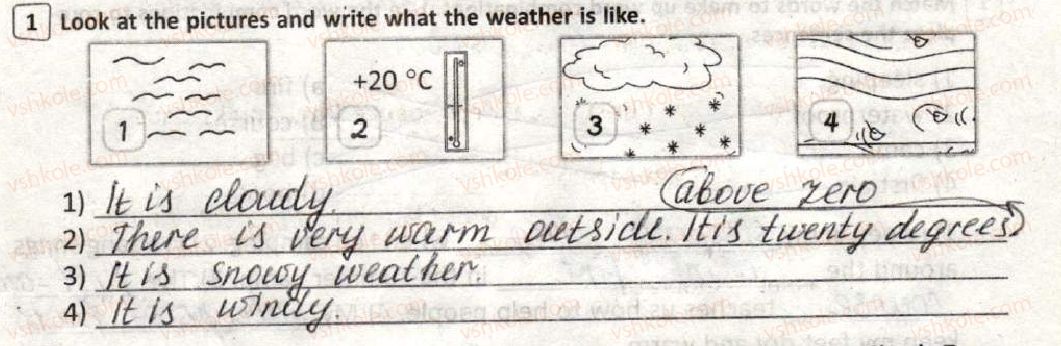 1 Look at the pictures and write what the weather is like.
1
+20 °C
2
3
4
1) It is cloudy.
above zero
2) There is very warm outside. It is twenty degrees
3) It is snowy weather.
4) It is windy.
vshkole.com